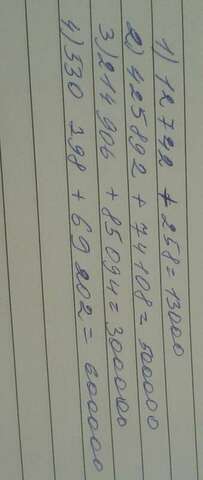 1) 12 742 + 258 = 13000
2) 425892 + 74108 = 500000
3) 214906 + 85094 = 300000
4) 530 798 + 69 202 = 600000